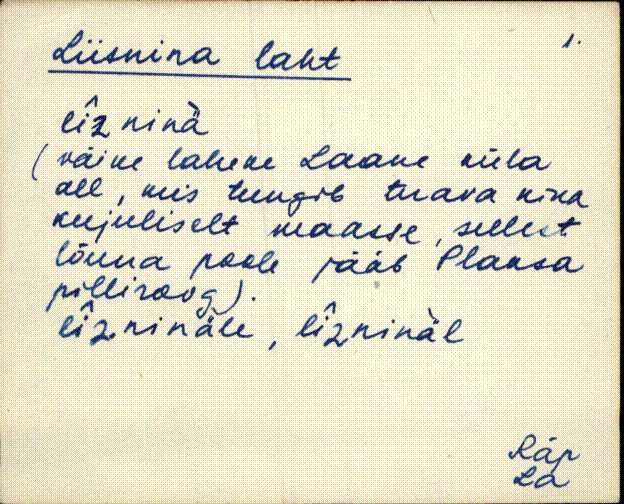 Liisnina laht
1.
lîz ninà̈
(väike laheke Laane küla
all, mis tungib terava nina
kujuliselt maasse, sellest
lõuna poole jääb Plaksa
pilliroog).
lîz ninäle, lîzninäl
Räp
La